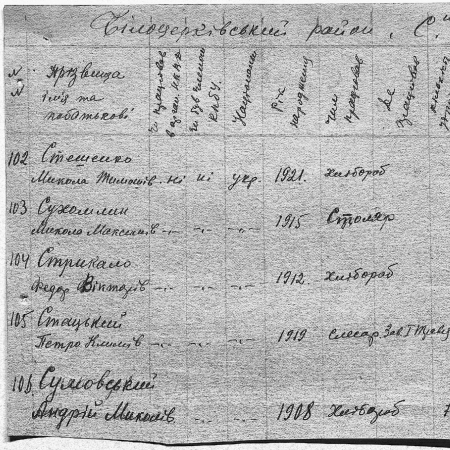 Білоцерківський район. С.
№ Прізвища Чи працював Чи був членом Національн Рік Чим Де
№ ім'я та в органах НКВД КПбУ. народження працював
побатькові
102 Стешенко
Микола Тимошів. ні ні укр. 1921. хлібороб
103 Сухомлин
Микола Максимів -"- -"- -"- 1915 Столяр
104 Стрикало
Федор Вікторів -"- -"- -"- 1912. хлібороб
105 Стацький
Петро Климів -"- -"- -"- 1919 Слесар Зав.
106 Сумовський
Андрій Миколів -"- -"- 1908 хлібороб